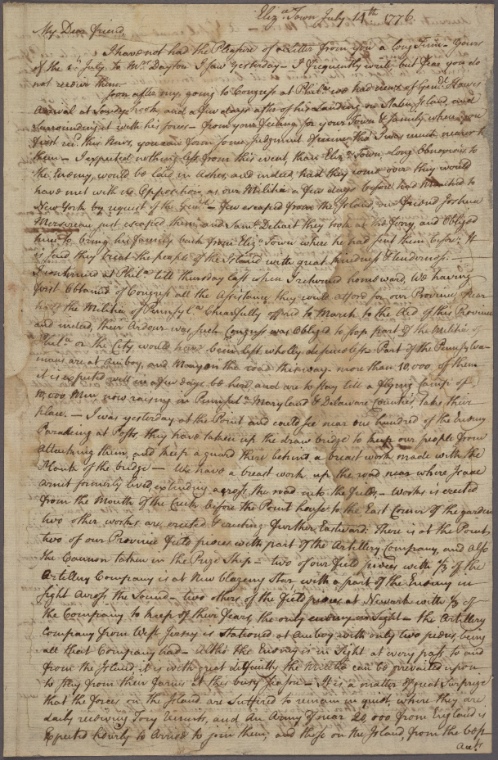 Eliz.a Town July 14th 1776
My Dear friend
I have not had the Pleasure of a Letter from you a long Time - Your
of the July to Mr. Dayton I saw yesterday - I frequently write but fear you do
not receive them.
Soon after my going to Congress at Philad.a we had news of Gen.l Howes
Arrival at Sandy hook, and a few days after of his Landing on Staten Island, and
Surrounding it with his forces - from your for your Town & family when you
first in this News, you can form some Judgment of mine, that I was much nearer to
them - I expected nothing less from this event, than Eliz.a Town, long obnoxious to
the Enemy, would be laid in ashes, and indeed had they come over they would
have met with no Opposition, as our Militia a few days before had Marched to
New York by request of the Gen.l - few escaped from the Island, our friend Joshua
Mersereau just escaped them, and Sam.l Dehart they took at the ferry, and obliged
him to bring his back from Eliz.a Town where he had sent them before; It
is said they treat the people of the Island with great kindness & tenderness.
I continued at Phil.a till Thursday last when I returned homeward, We having
first obtained of Congress all the Assistance they could afford for our Province. Near
half the Militia of Pennsyl.a Chearfully offer'd to March to the Aid of this Province
and indeed, their Ardour was such Congress was Obliged to stop part of the Militia of
Phil.a or the City would have been left wholly defenceless Part of the Pennsylva-
nians are at Amboy, and Many on the road this way. more than 10,000 of them
it is expected will in a few days be here, and are to stay till a flying Camp of
10,000 Men now raising in Pennsyl.a Maryland & Delaware Counties take their
place. - I was yesterday at the Point and could see near one hundred of the Enemy
Parading at Posts, they have taken up the draw bridge to keep our people from
Attacking them, and keep a guard there behind a breast work made with the
Plank of the bridge - We have a breast work up the road near where Isaac
Arnit formerly lived, extending across the road into the - Works is erected
from the Mouth of the Creek before the Point house to the East Corner of the garden
two other works are erected & erecting further Eastward. There is at the Point
two of our Province field pieces with part of the Artillery Company, and also
the Cannon taken in the Prize Ship - two of our field pieces with 1/3 of the
Artillery Company is at New Blazeing Star with a part of the Enemy in
sight Across the Sound - two others of the field pieces at Newark with 1/3 of
the Company to keep off their fears, the only enemy in sight - the Artillery
Company from West Jersey is stationed at Amboy with only two pieces, being
all that Company had - altho' the Enemy is in sight at every pass to and
from the Island, it is with great difficulty the Militia can be prevailed upon
to stay from their farms at this busy season - It is a matter of great Surprize
that the forces on the Island are Suffered to remain in quiet, where they are
daily receiving Tory recruits, and An Army of near 20 000 from England is
expected hourly to Arrive to join them, and those on the Island, from the best